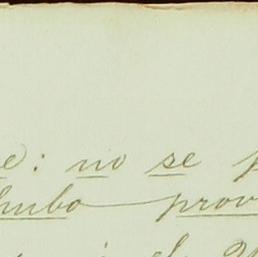 e: no se p
hubo prov